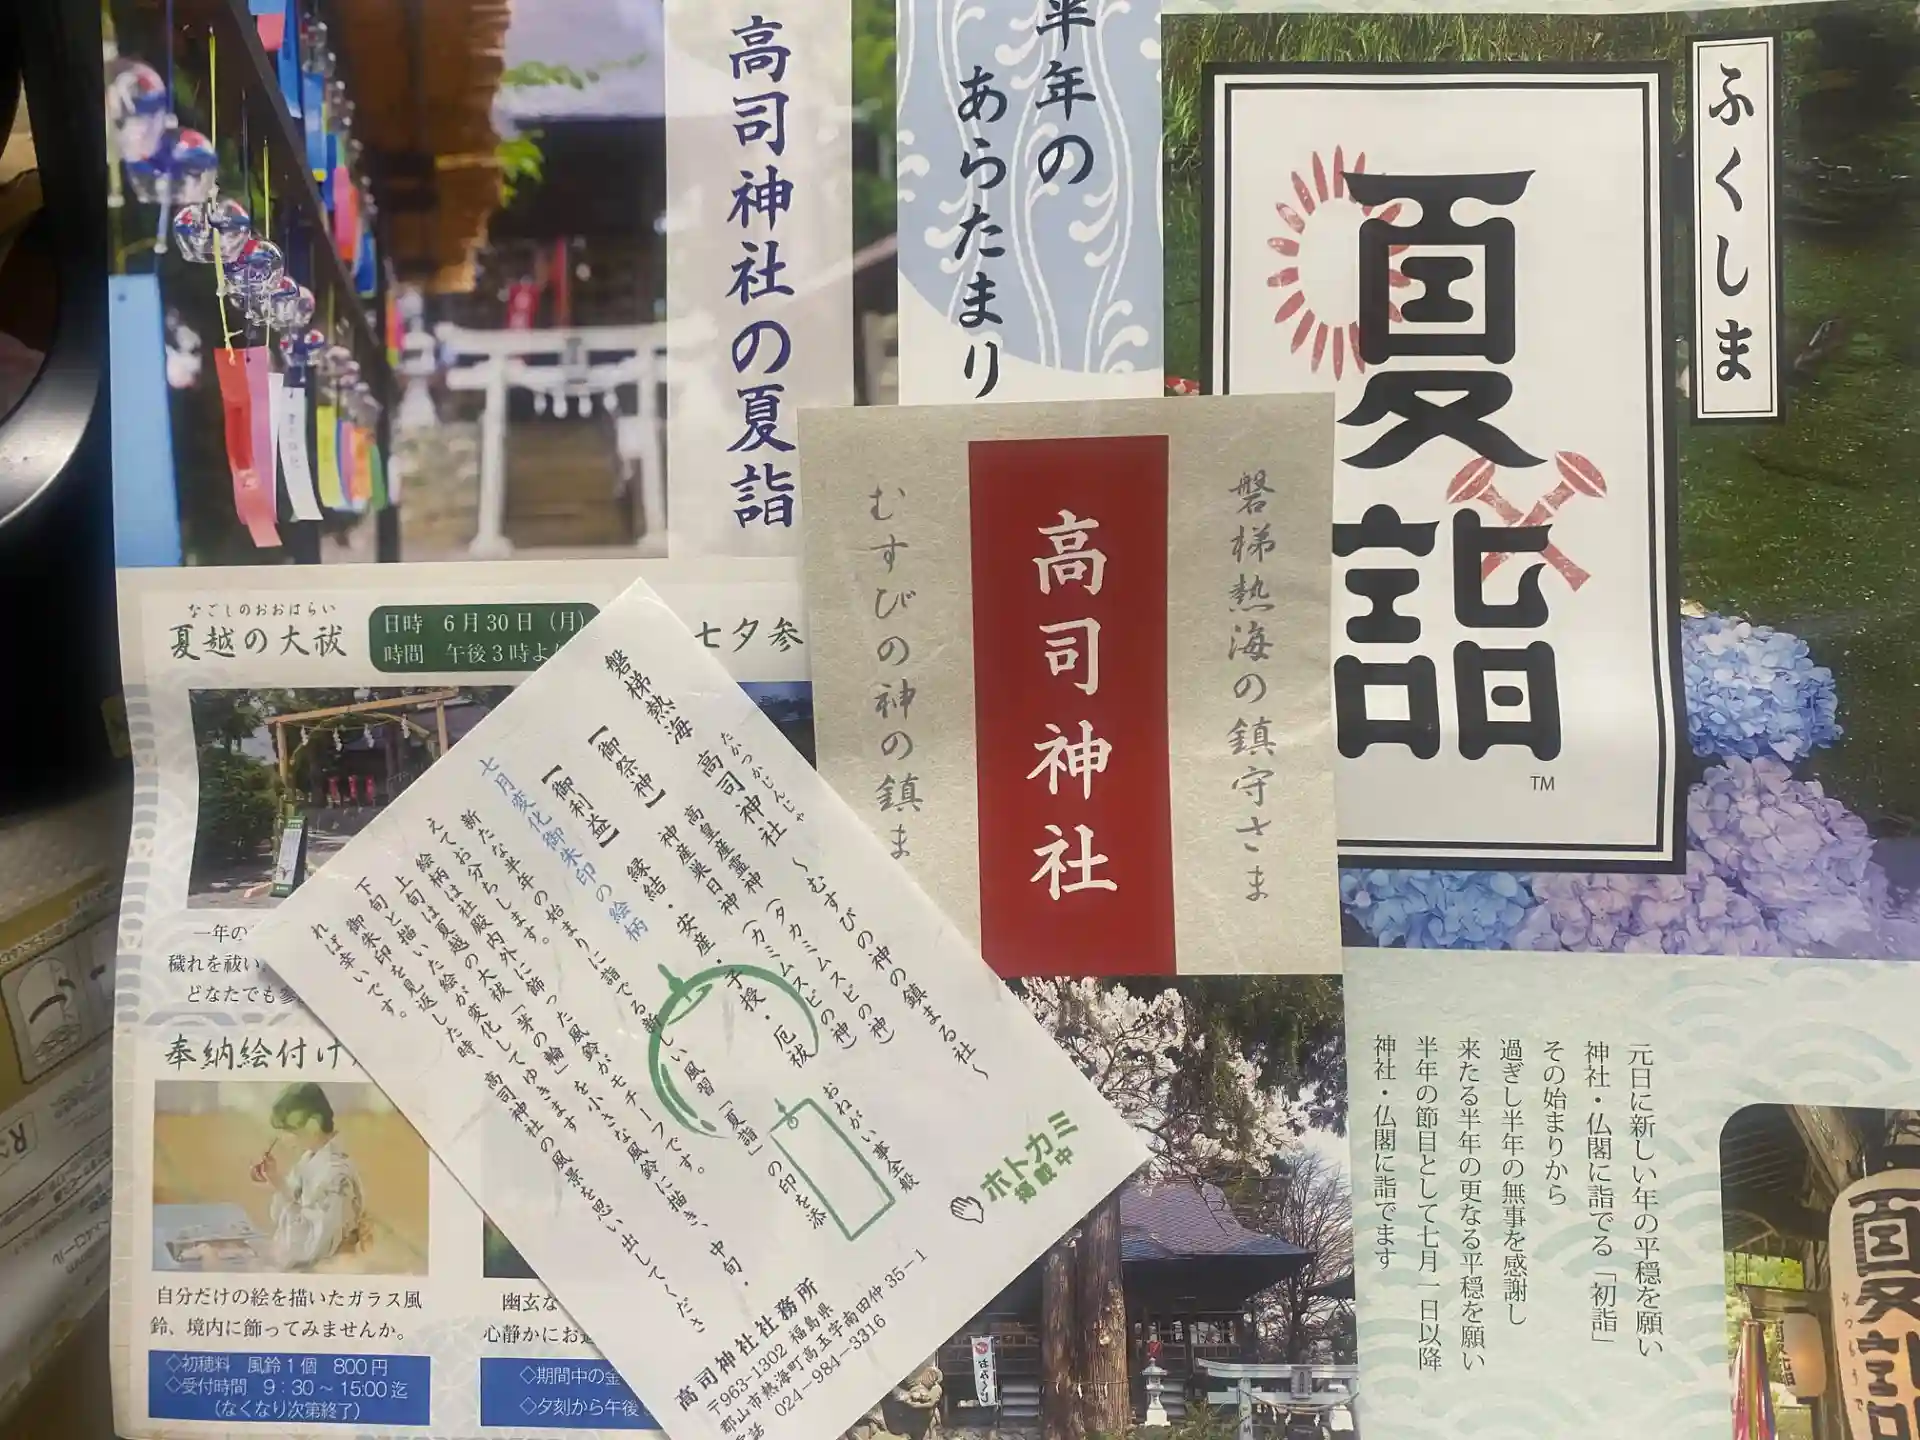 高司神社の夏詣
半年の
あらたまり
ふくしま
夏詣
TM
磐梯熱海の鎮守さま
高司神社
むすびの神の鎮ま
なごしのおおはらい
夏越の大祓
日時 6月30日（月）
時間 午後3時よ
七夕参
一年の
穢れを祓い
どなたでも参
奉納絵付け
自分だけの絵を描いたガラス風
鈴、境内に飾ってみませんか。
◇初穂料 風鈴1個 800円
◇受付時間 9：30～15:00迄
（なくなり次第終了）
幽玄な
心静かにお
◇期間中の金
◇夕刻から午後
磐梯熱海 高司神社 ～むすびの神の鎮まる社～
たかつかじんじゃ
【御祭神】 高皇産霊神（タカミムスビの神）
神産巣日神（カミムスビの神）
【御利益】 縁結・安産・子授・厄祓 おねがい事全般
七月変化御朱印の絵柄
新たな半年の始まりに詣でる新しい風習「夏詣」の印を添
えてお分ちします。
絵柄は社殿内外に飾った風鈴がモチーフです。
上旬は夏越の大祓「茅の輪」を小さな風鈴に描き、中旬・
下旬と描いた絵が変化してゆきます
御朱印を見返した時、高司神社の風景を思い出してくださ
れば幸いです。
ホトカミ
掲載中
高司神社社務所
〒963-1302 福島県
郡山市熱海町高玉字南田仲35-1
電話 024-984-3316
元日に新しい年の平穏を願い
神社・仏閣に詣でる「初詣」
その始まりから
過ぎし半年の無事を感謝し
来たる半年の更なる平穏を願い
半年の節目として七月一日以降
神社・仏閣に詣でます
おみくじ
夏詣